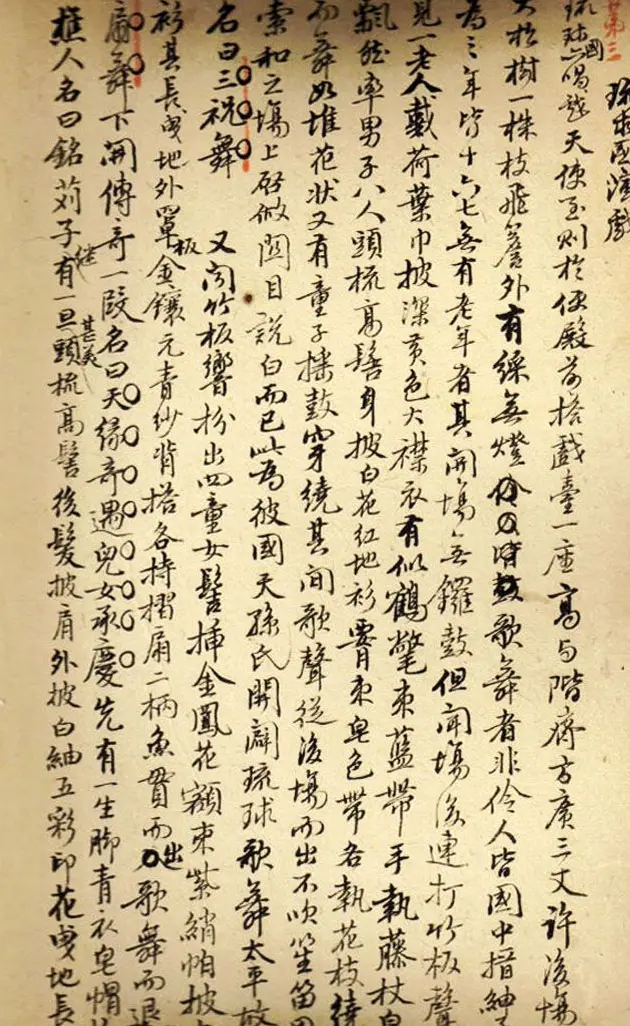 第三
琉球國演戲
琉球國唱 天使至則於便殿前搭戲臺一座高與階齊方廣三丈許後場
大松樹一株枝飛簷外有綵無燈 歌舞者非伶人皆國中搢紳
為之年皆十六七無有老年者其開場無鑼鼓但聞場後連打竹板聲
見一老人戴荷葉巾披深黃色大襟衣有似鶴氅束藍帶手執藤杖白
飄然率男子八人頭梳高髻身披白花紅地衫腰束皂色帶各執花枝繞
而舞如堆花狀又有童子搖鼓穿繞其間歌聲從後場而出不吹笙笛
索和之場上啓做關目說白而已此為彼國天孫氏開闢琉球歌舞太平故
名曰三祝舞 又聞竹板響扮出四童女髻插金鳳花額束紫綃帕披
衫甚長曳地外罩板金鑲元青紗背搭各持摺扇二柄魚貫而出歌舞而退
扇舞下開傳奇一段名曰天緣奇遇兒女承慶先有一生脚青衣皂帽
樵人名曰銘苅子繼有一旦甚美頭梳高髻後髮披肩外披白紬五彩印花曳地長